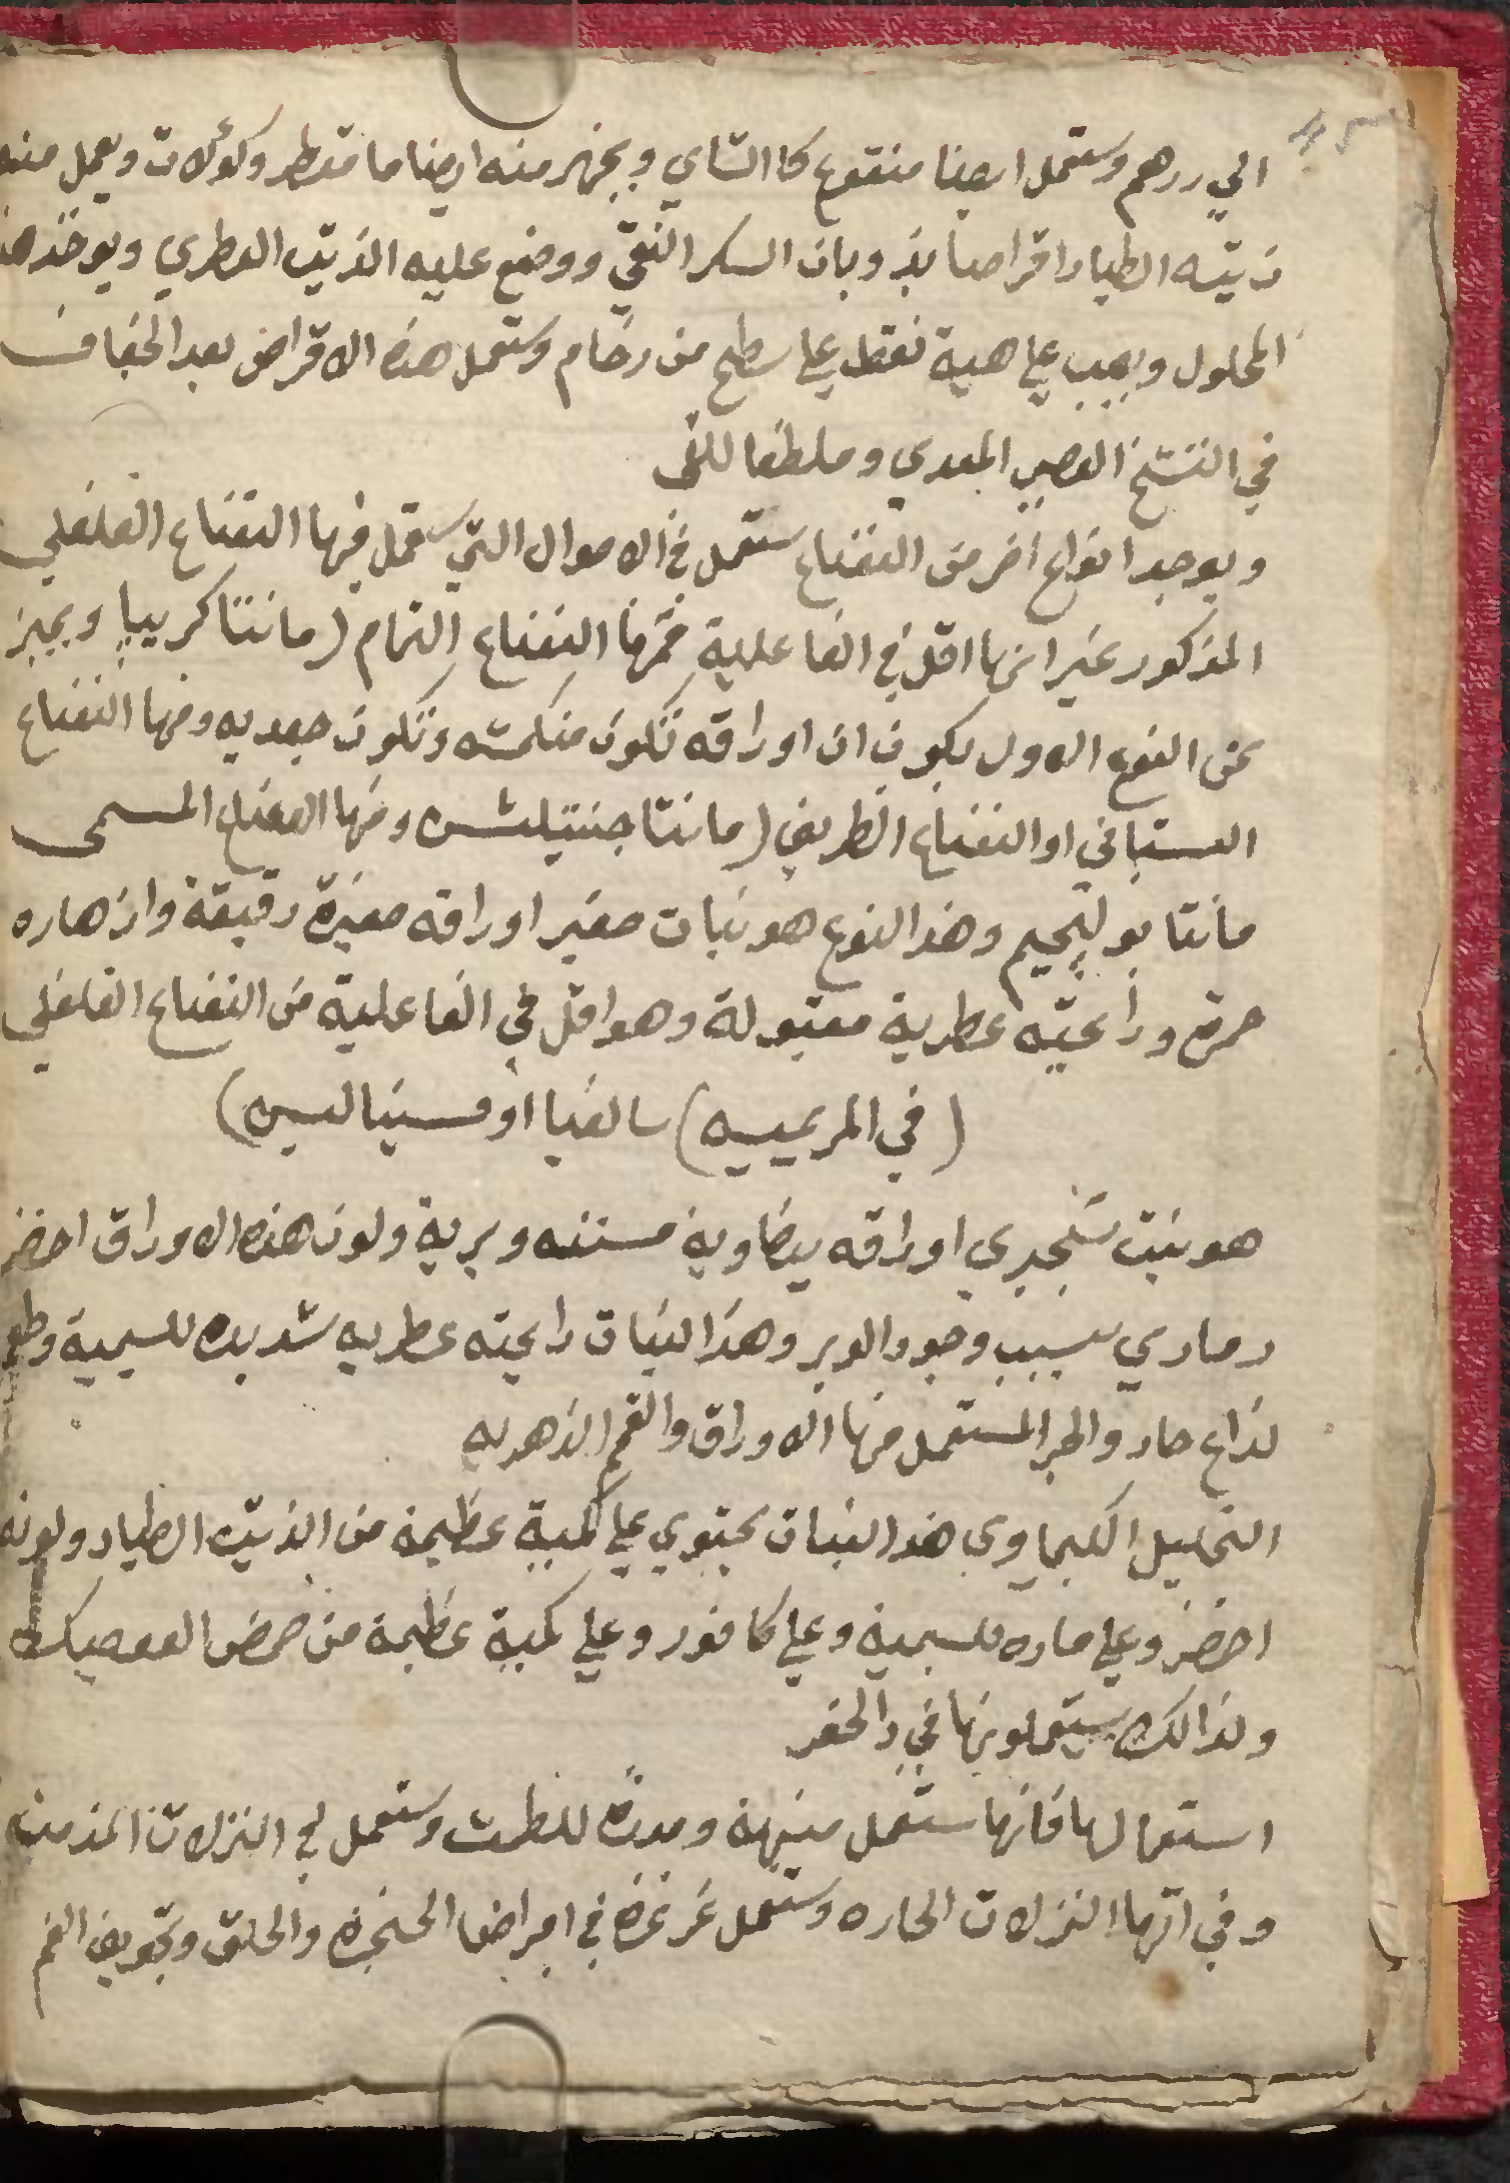 الي درهم وستعمل ايضا منقوع كا الشاي ويجهز منه ايضا ما مقطر وكؤلات ويعمل منه
زيته الطيار اقراصا بذوبان السكر النقي ووضع عليه الذيت العطري ويوخذ هذ
المحلول ويصب علي هية نقط علي سطح من رخام وستعمل هذه الاقراص بعد الجفاف
في التشنج العصبي المعدي وملطفا للقي
ويوجد انواع اخر من النعناع ستعمل في الاحوال التي ستعمل فيها النعناع الفلفلي
المذكور غير انها اقل في الفاعلية فمنها النعناع التمام (مانتا كريبا ويميز
عن النوع الاول بكون ان اوراقه تكون منكمشه وتكون جعديه ومنها النعناع
البستاني او النعناع الظريف (مانتا جنتيلش ومنها النعناع المسمى
مانتا بولنجيم وهذا النوع هو نبات صغير اوراقه صغيرة رقيقة وازهاره
حمرة ورائحته عطرية مقبولة وهو اقل في الفاعلية من النعناع الفلفلي
(في المريميه) سالفيا اوفسينالس)
هو نبت شجيري اوراقه بيضاوية مسننه وبرية ولون هذه الاوراق اخضر
رمادي بسبب وجود الوبر وهذا النبات رايحته عطريه شديده للسيمية وطعم
لذاع حار والجز المستعمل منها الاوراق والقمم الزهريه
التحليل الكيماوي هذا النبات يحتوي علي كمية عظيمة من الذيت الطيار ولونه
اخضر وعلي ماده للسيمية وعلي كافور وعلي كمية عظيمة من حمض العفصيك
ولذالك يستعملونها في دالحفر
استعمالها فانها ستعمل منبهة ومدرة للطمث وستعمل في النزلات المذمنه
وفي انتها النزلات الحاره وستعمل غرغرة في امراض الحنجرة والحلق وتجويف الفم